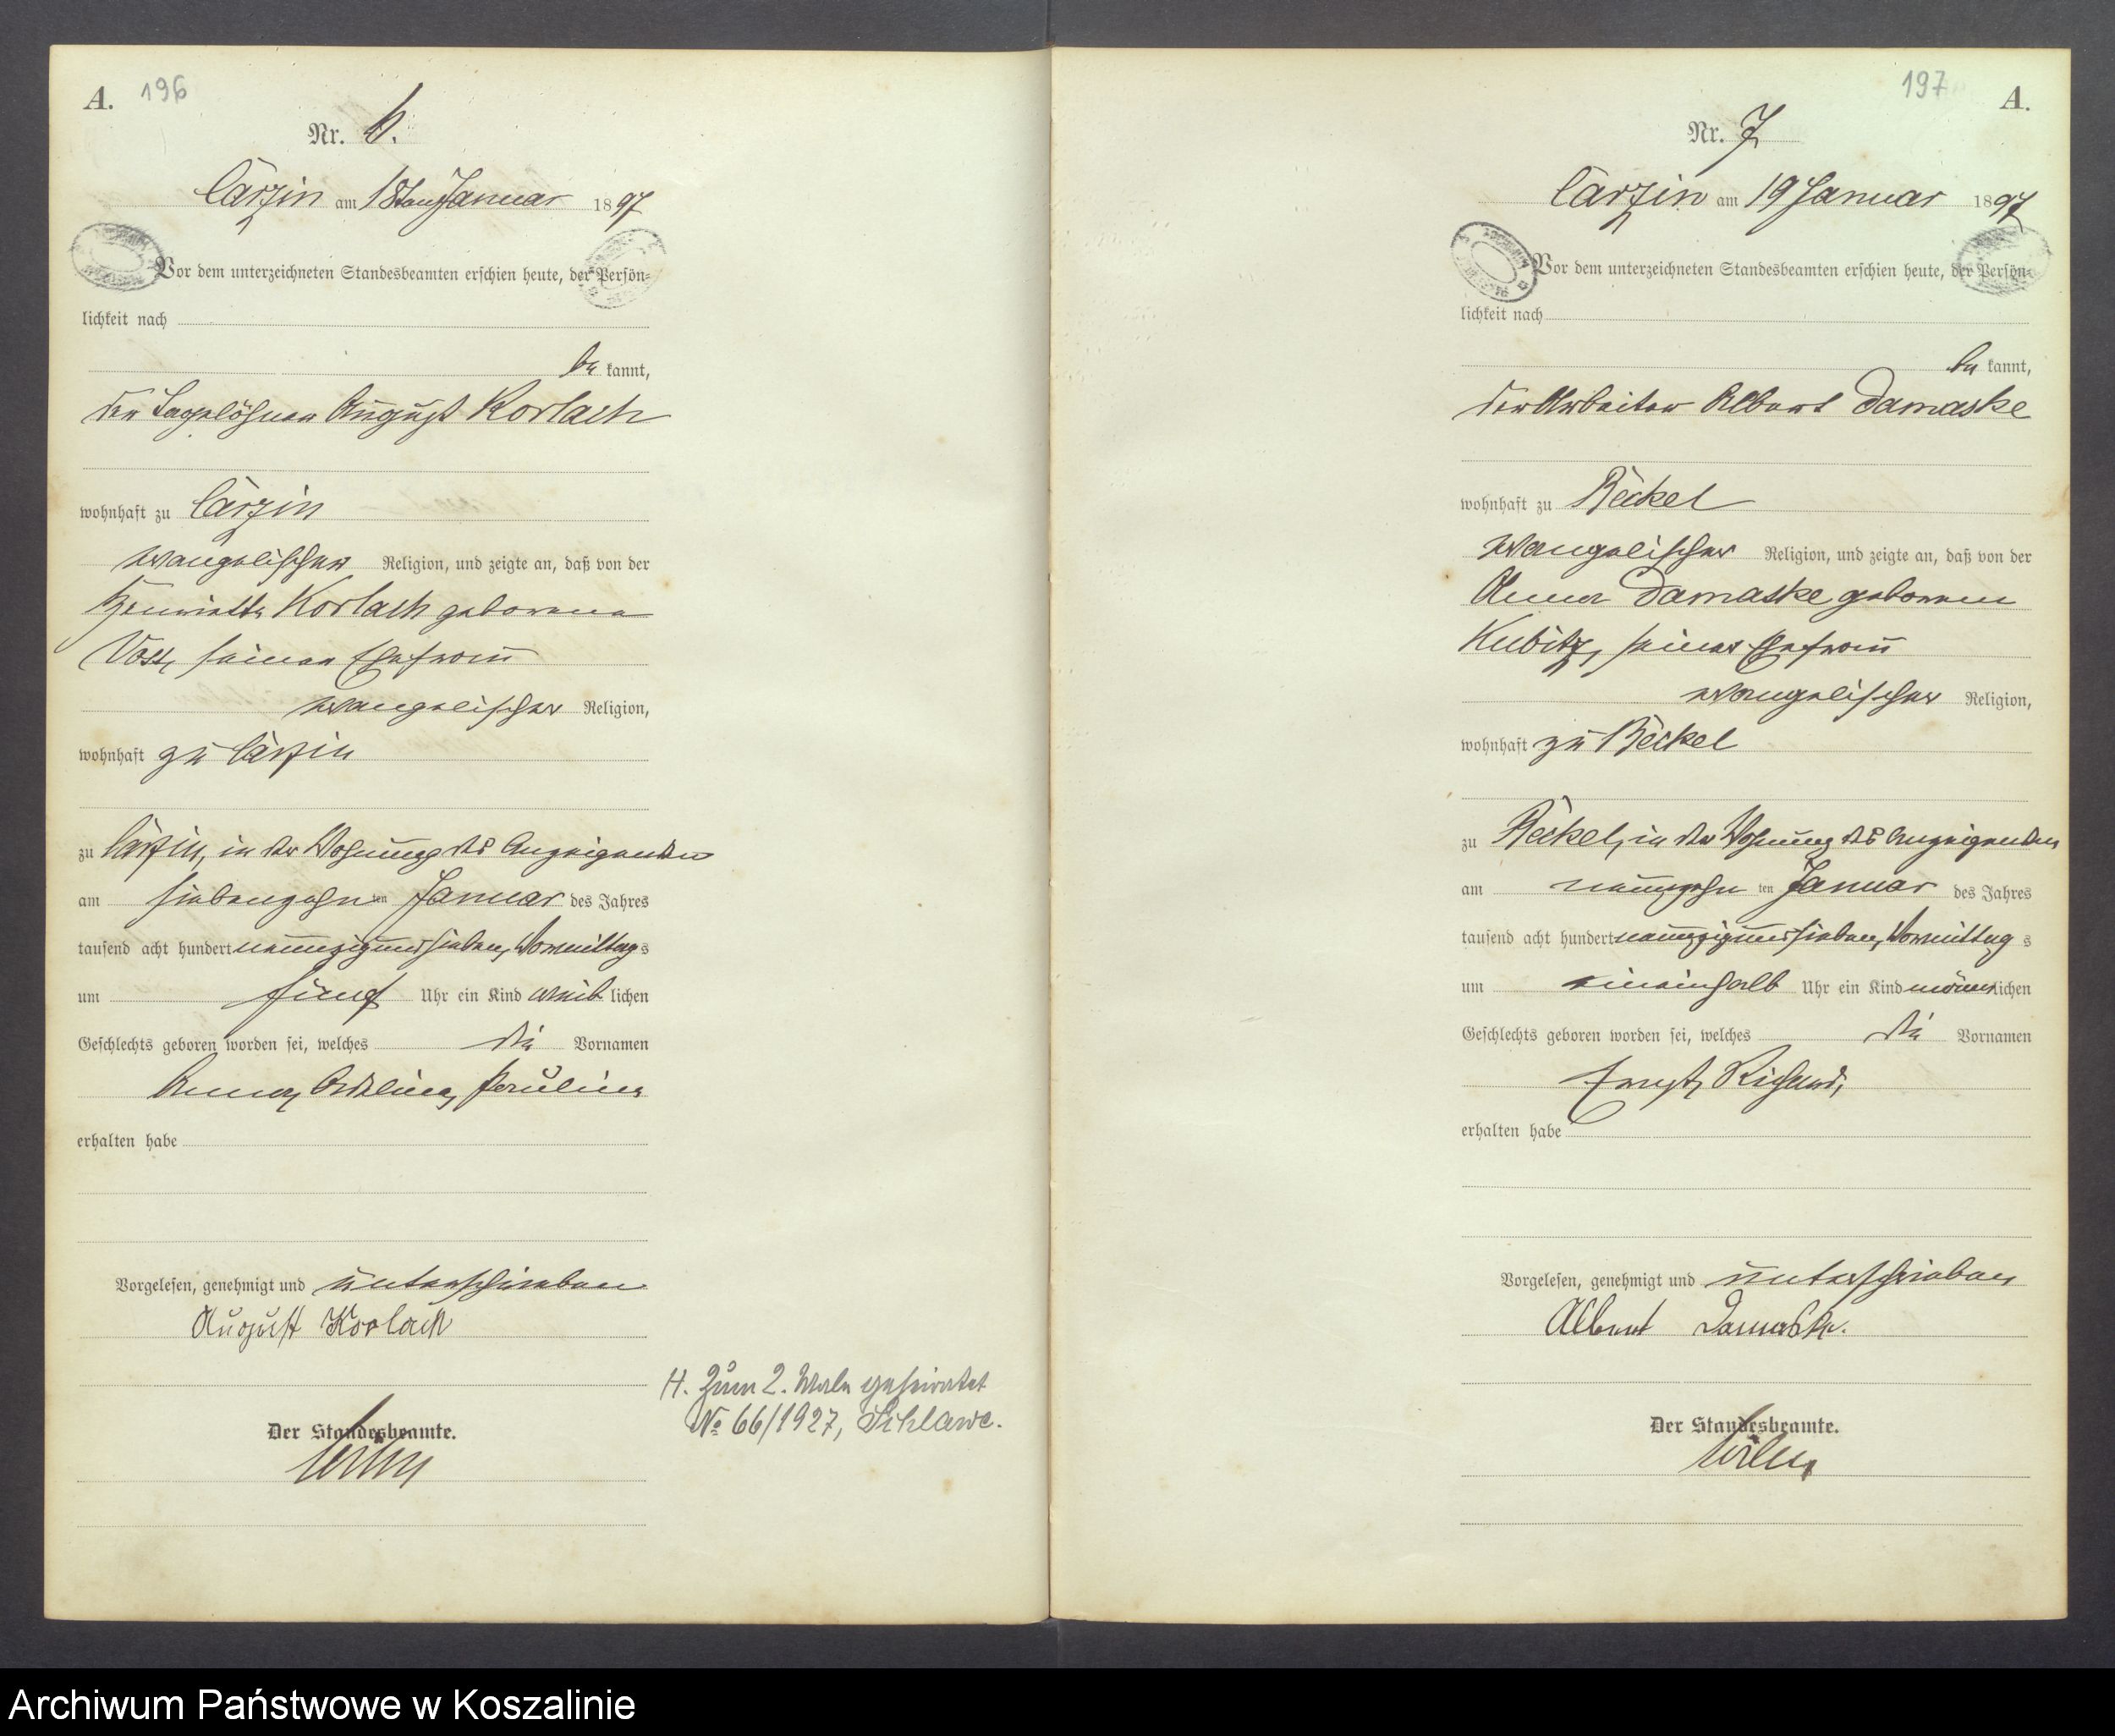 A. 196
Nr. 6.
Carzin am 18ten Januar 1897
Vor dem unterzeichneten Standesbeamten erschien heute, der Persön-
lichkeit nach
be kannt,
der Tagelöhner August Korlach
wohnhaft zu Carzin
evangelischer Religion, und zeigte an, daß von der
Henriette Korlach geborene
Voss, seiner Ehefrau
evangelischer Religion,
wohnhaft zu Carzin
zu Carzin, in der Wohnung des Anzeigenden
am siebenzehn ten Januar des Jahres
tausend acht hundert neunzigundsieben, Vormittags
um fünf Uhr ein Kind weib lichen
Geschlechts geboren worden sei, welches die Vornamen
Anna, Pauline
erhalten habe
Vorgelesen, genehmigt und unterschrieben
August Korlach
H. Zum 2. Male geheiratet
№ 66/1927, Schlawe.
Der Standesbeamte.
197 A.
Nr. 7
Carzin am 19 Januar 1897
Vor dem unterzeichneten Standesbeamten erschien heute, der Persön-
lichkeit nach
be kannt,
der Arbeiter Albert Damaske
wohnhaft zu Reckel
evangelischer Religion, und zeigte an, daß von der
Anna Damaske geborenen
Kubitz, seiner Ehefrau
evangelischer Religion,
wohnhaft zu Reckel
zu Reckel, in der Wohnung des Anzeigenden
am neunzehn ten Januar des Jahres
tausend acht hundert neunzigundsieben, Vormittag s
um eineinhalb Uhr ein Kind männ lichen
Geschlechts geboren worden sei, welches die Vornamen
Ernst, Richard,
erhalten habe
Vorgelesen, genehmigt und unterschrieben
Albert Damaske.
Der Standesbeamte.
Archiwum Państwowe w Koszalinie